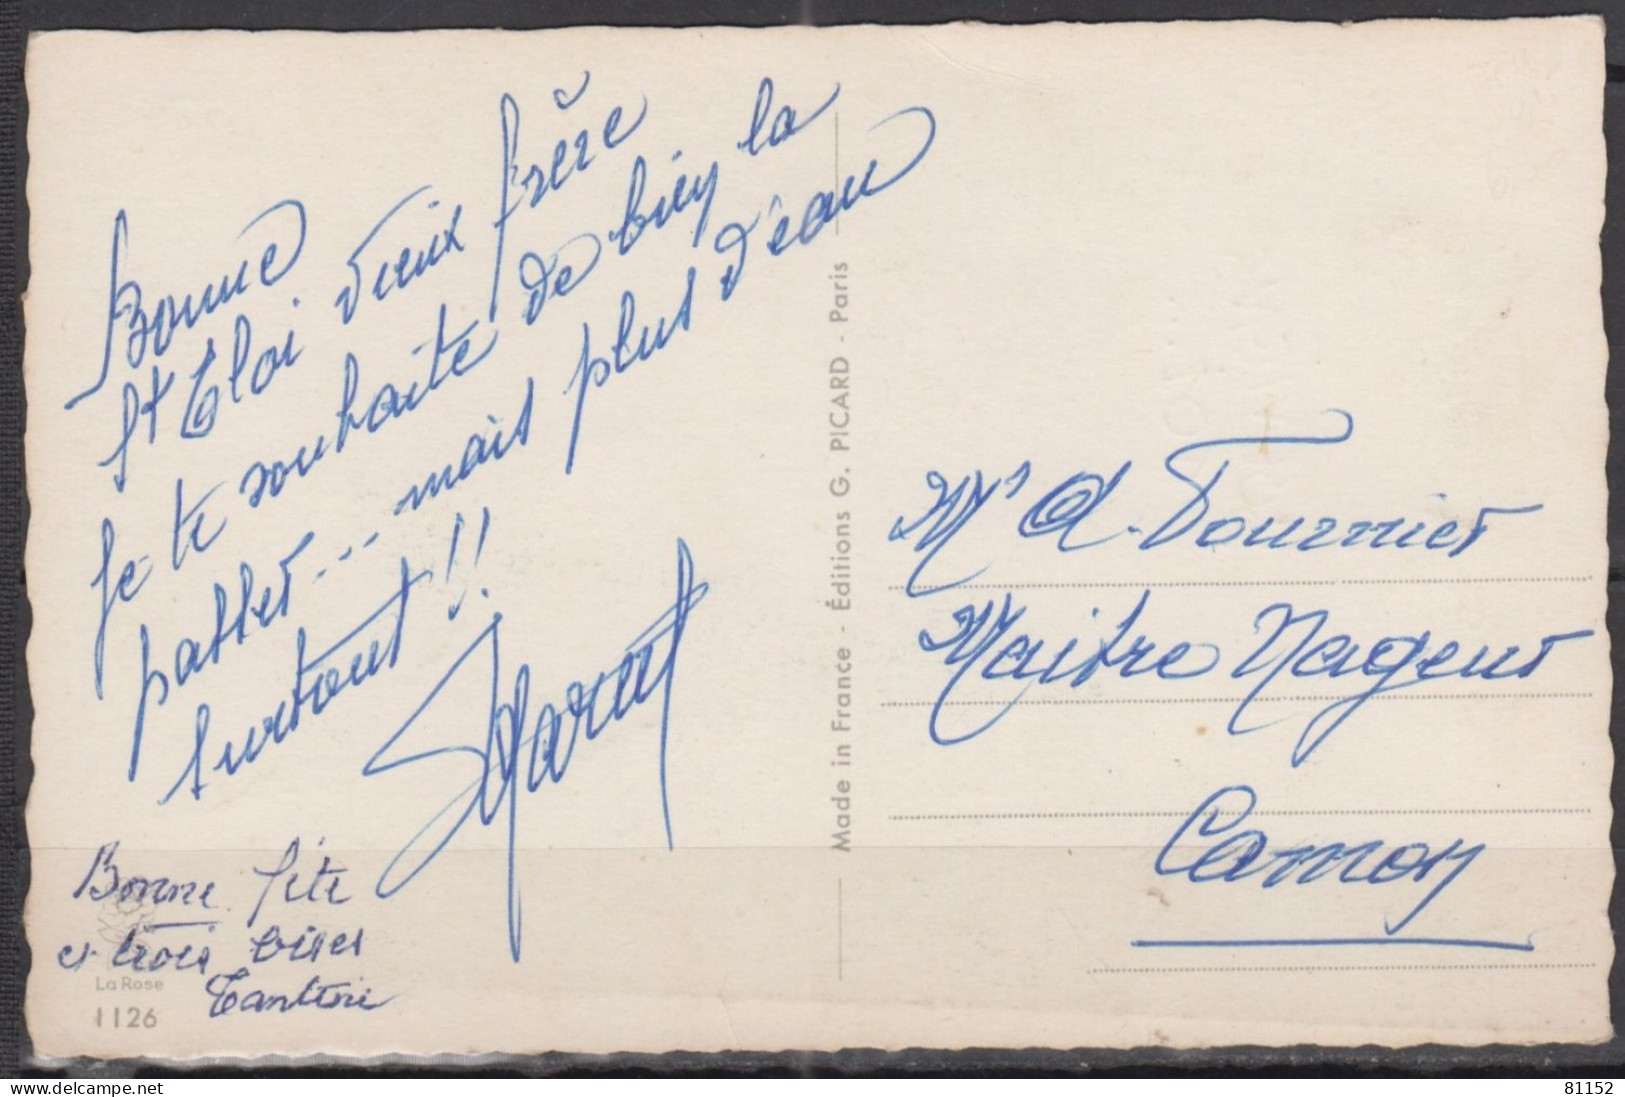 Bonne
St Eloi vieux frère
Je te souhaite de bien la
passer... mais plus d'eau
surtout !!
Bonne fête
et trois bises
Tantine
La Rose
1126
Made in France - Éditions G. PICARD - Paris
Mr A. Fournier
Maitre Nageur
Camon
81152